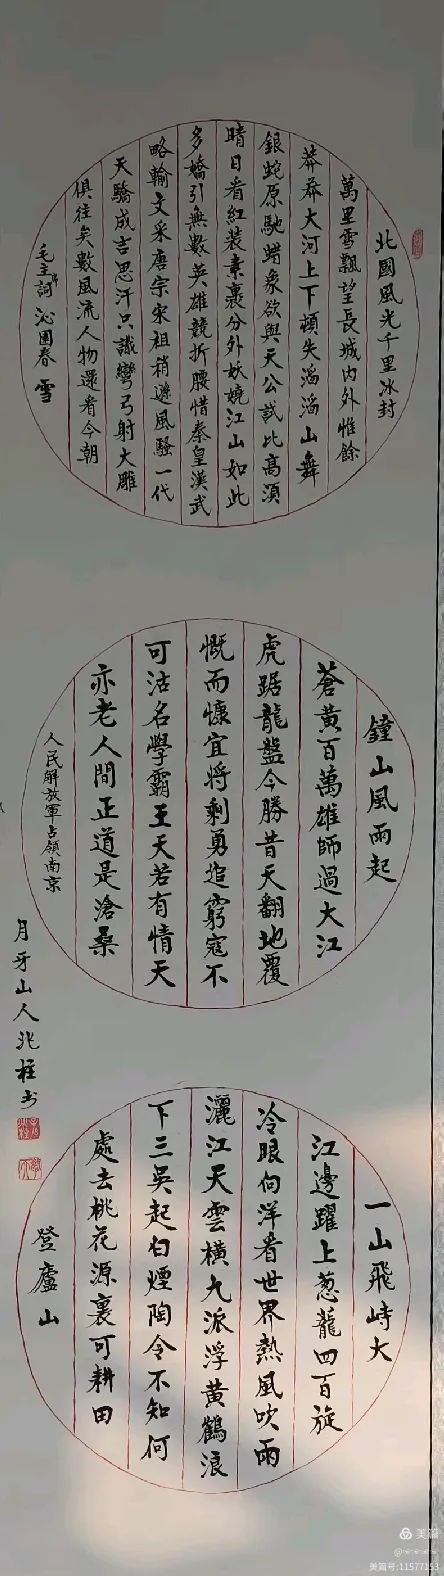 北國風光千里冰封
萬里雪飄望長城內外惟餘
莽莽大河上下頓失滔滔山舞
銀蛇原馳蜡象欲與天公試比高須
晴日看紅裝素裹分外妖嬈江山如此
多嬌引無數英雄競折腰惜秦皇漢武
略輸文采唐宗宋祖稍遜風騷一代
天驕成吉思汗只識彎弓射大雕
俱往矣數風流人物還看今朝
毛主席詞沁園春雪
鐘山風雨起
蒼黃百萬雄師過大江
虎踞龍盤今勝昔天翻地覆
慨而慷宜將剩勇追窮寇不
可沽名學霸王天若有情天
亦老人間正道是滄桑
人民解放軍占領南京
一山飛峙大
江邊躍上葱蘢四百旋
冷眼向洋看世界熱風吹雨
灑江天雲橫九派浮黃鶴浪
下三吳起白煙陶令不知何
處去桃花源裏可耕田
登廬山
月牙山人兆柱书
美篇
美篇号:11577153